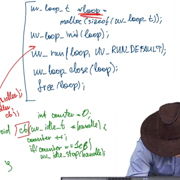 uv_loop_t *loop =
malloc(sizeof(uv_loop_t));
uv_loop_init(loop);
uv_run(loop, UV_RUN_DEFAULT);
uv_loop_close(loop);
free(loop);
int counter = 0;
void cb(uv_idle_t *handle) {
counter++;
if(counter ==
uv_idle_stop(handle);
}